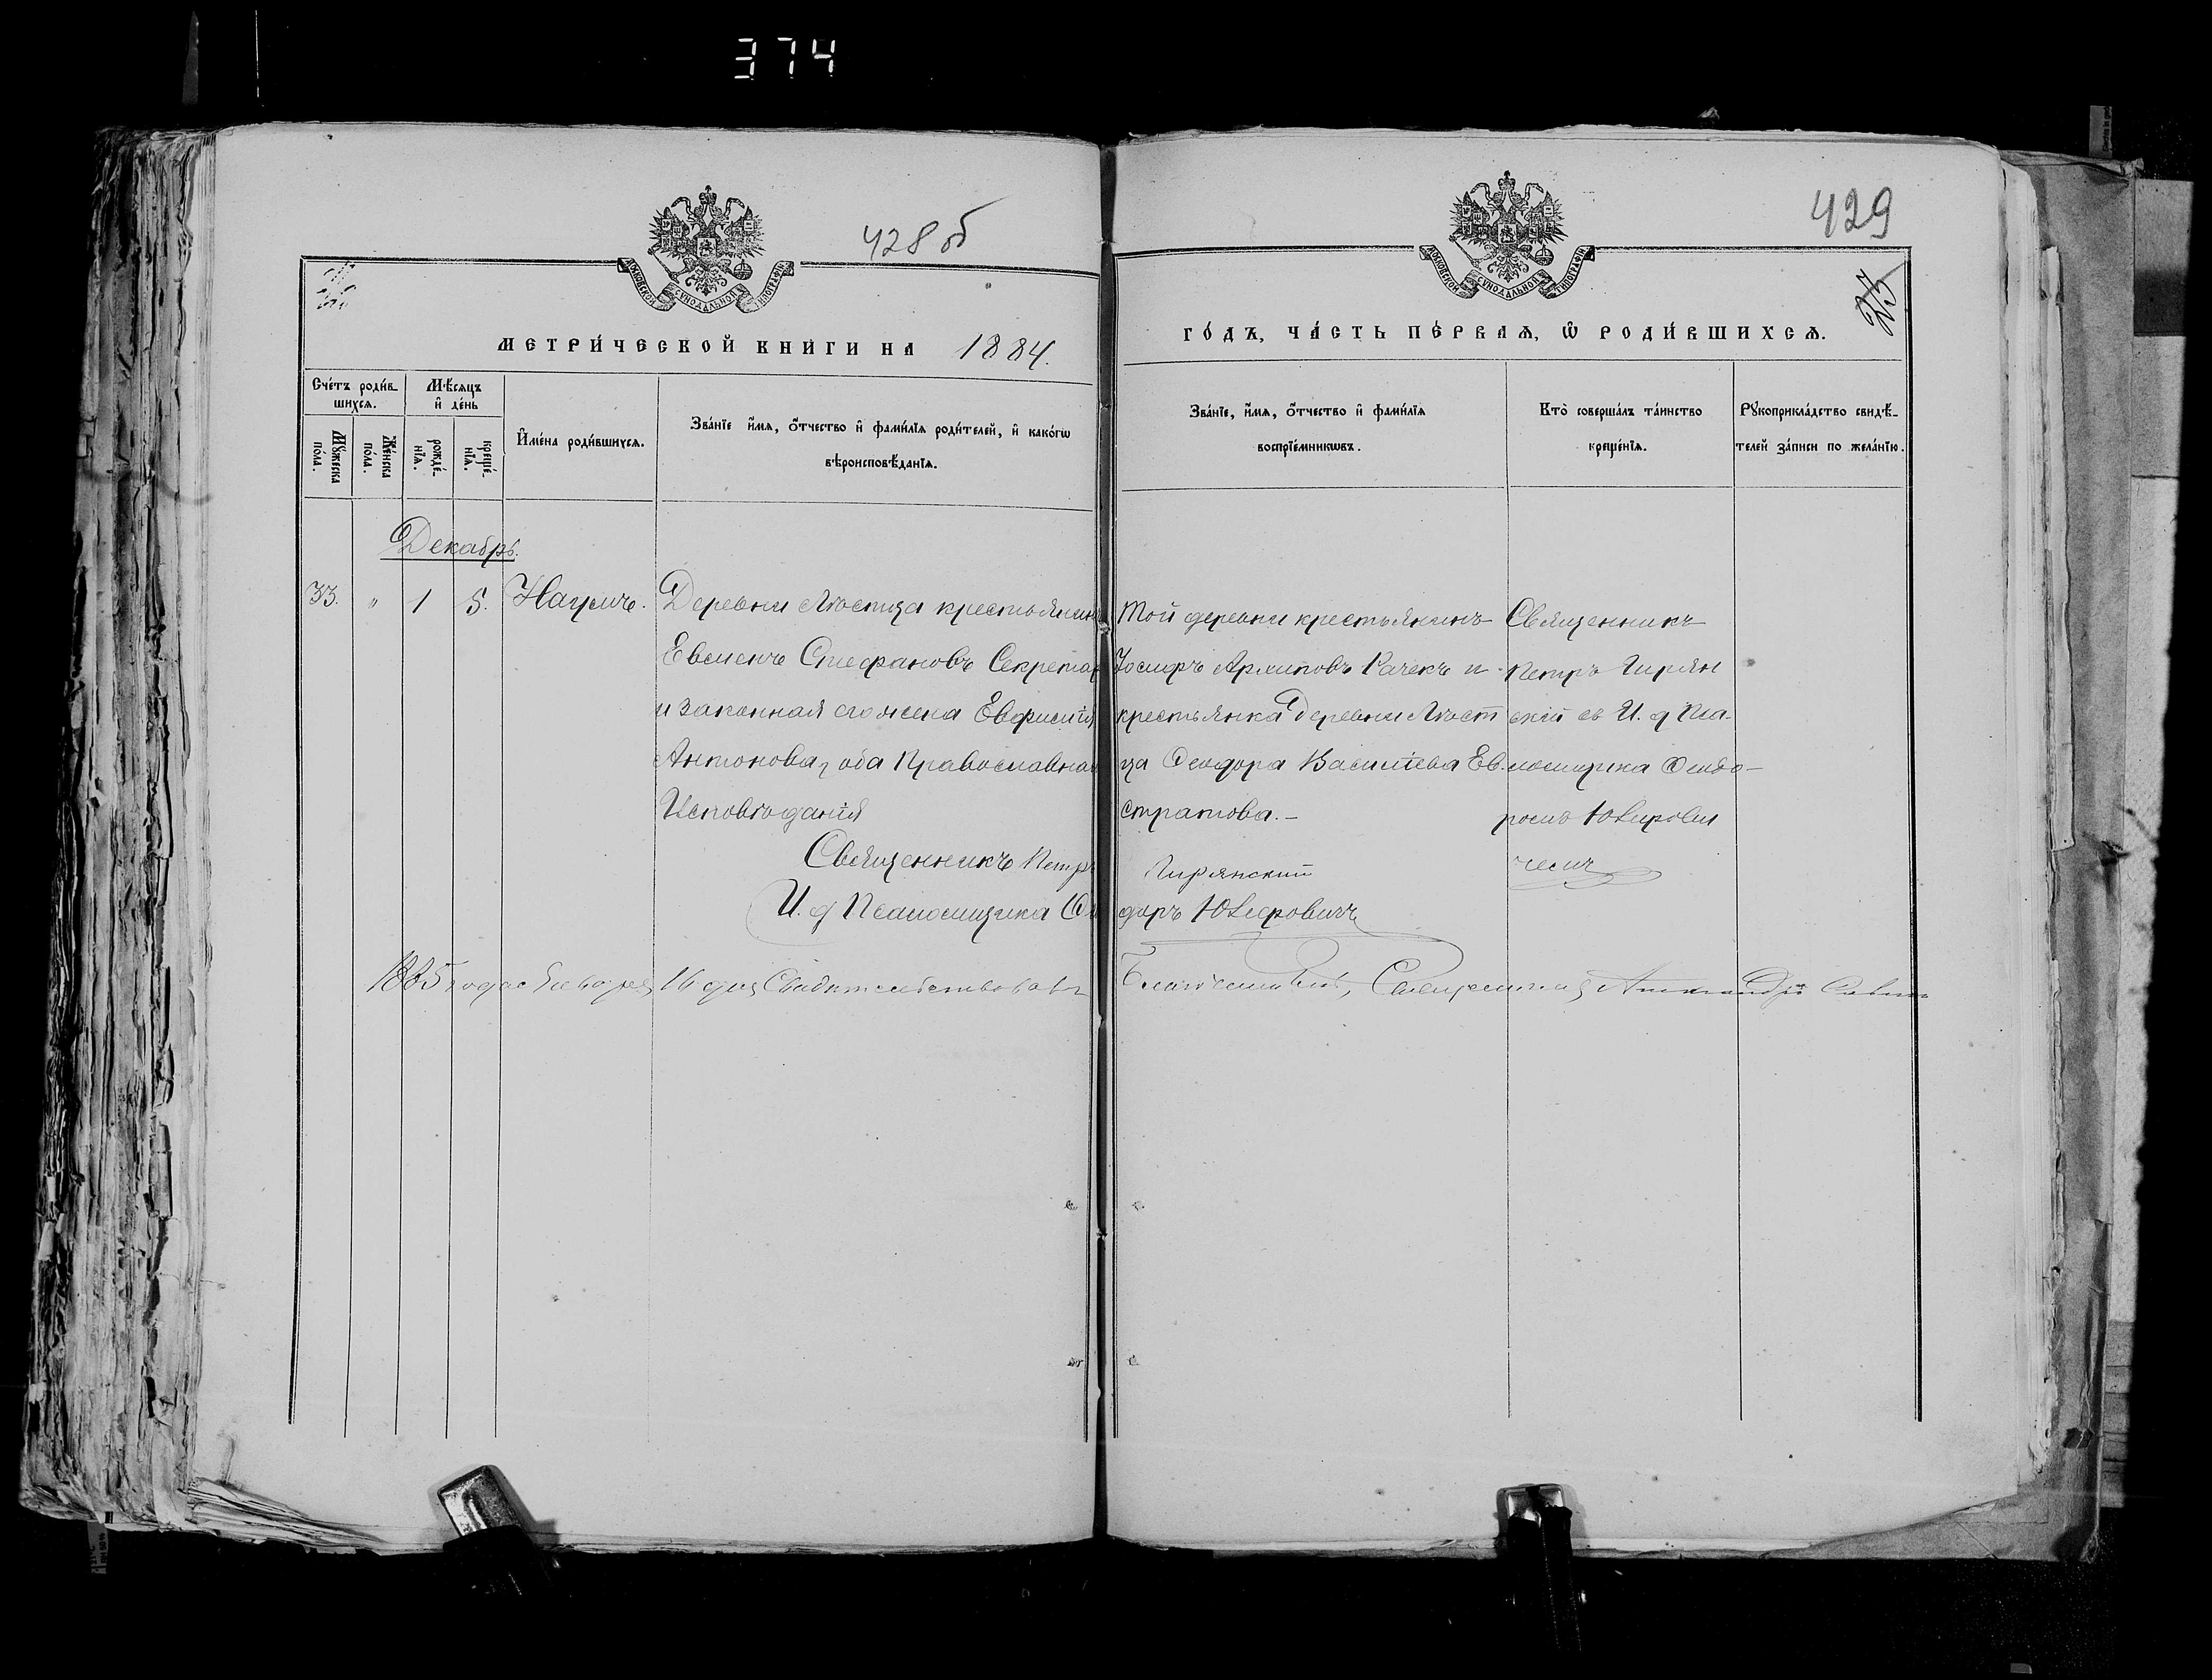 374
428 об
429
МОСКОВСКОЙ СѴНОДАЛЬНОЙ ТИПОГРАФІИ
МОСКОВСКОЙ СѴНОДАЛЬНОЙ ТИПОГРАФІИ
МЕТРИ́ЧЕСКОЙ КНИГИ НА 1884.
ГО́ДЪ, ЧА́СТЬ ПЕ́РВАѦ, Ѽ РОДИ́ВШИХСѦ.
Сче́тъ роди́в-
шихсѧ.
Мꙋ́жеска
по́ла.
Же́нска
по́ла.
Мѣ́сѧцъ
и҆ де́нь
рожде́-
нїѧ.
креще́-
нїѧ.
И҆мена̀ роди́вшихсѧ.
Зва́нїе и҆́мѧ, ѻ҆́тчество и҆ фами́лїѧ роди́телей, и҆ како́гѡ
вѣроисповѣ́данїѧ.
Зва́нїе, и҆́мѧ, ѻ҆́тчество и҆ фами́лїѧ
воспрїе́мникѡвъ.
Кто̀ соверша́лъ та́инство
креще́нїѧ.
Рꙋкоприкла́дство свидѣ́-
телей за́писи по жела́нїю.
Декабрь.
33. " 1 5. Наумъ.
Деревни крестьянинъ
Евменъ Стефановъ Секретар
и законная его жена Евфимія
Антонова, оба Православнаго
Исповѣданія
Той деревни крестьянинъ
Іосифъ Архиповъ Рачекъ и
крестьянка деревни
ца Ѳеодора Васильева Ев.
стратова.-
Священникъ
Петръ Гирян
скій съ И. д Пса-
ломщика Ѳеодо-
ромъ
чемъ
Священникъ Петръ Гирянскій
И. д Псаломщика Ѳеодоръ
1885 года Января 16 дня Свидѣтельствовалъ Благочинный, Священникъ Александръ